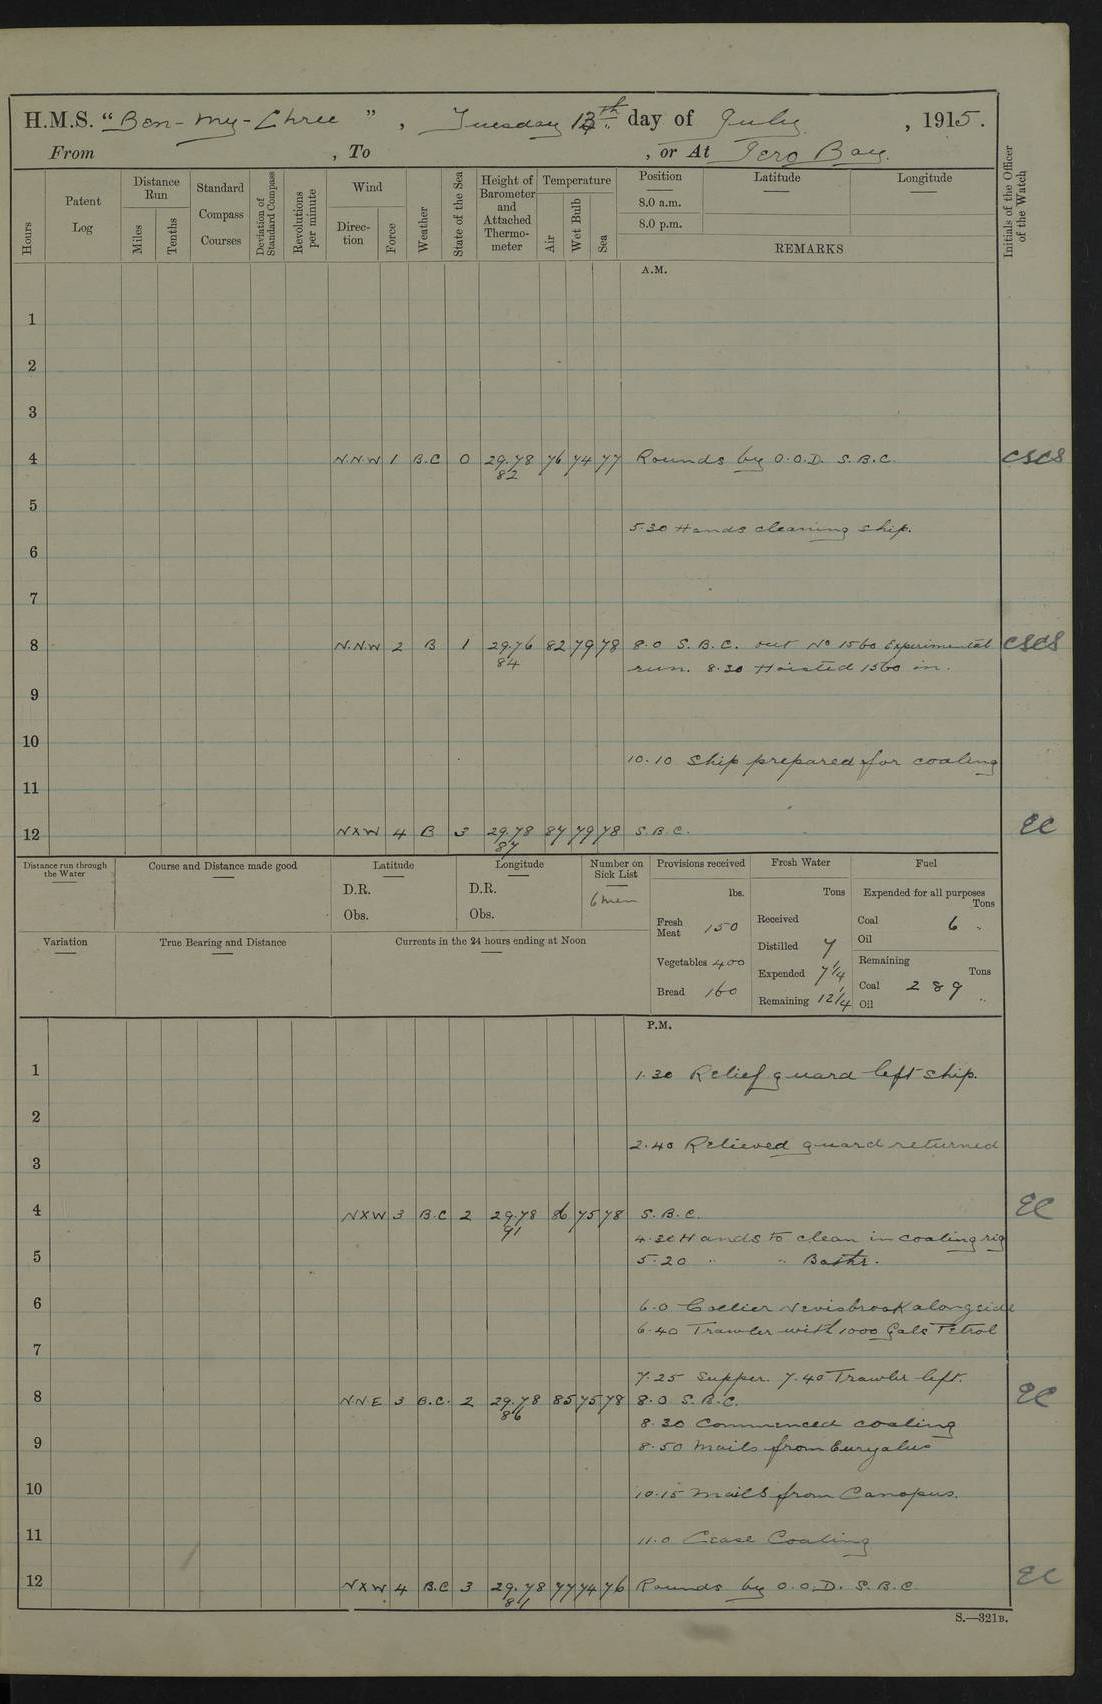 H.M.S. "Ben-my-Chree", Tuesday 13th day of July, 1915.
From , To , or At Iero Bay.
Hours
Patent Log
Distance Run
Miles
Tenths
Standard Compass Courses
Deviation of Standard Compass
Revolutions per minute
Wind
Direction
Force
Weather
State of the Sea
Height of Barometer and Attached Thermometer
Temperature
Air
Wet Bulb
Sea
Position
8.0 a.m.
8.0 p.m.
Latitude
Longitude
REMARKS
Initials of the Officer of the Watch
A.M.
1
2
3
4 N.N.W 1 B.C 0 29.78 76 74 77 Rounds by O.O.D. S.B.C. CSCS
82
5
5.30 Hands cleaning ship.
6
7
8 N.N.W 2 B 1 29.76 82 79 78 8.0 S.B.C. out No 1560 Experimental CSCS
84 run. 8.30 Hoisted 1560 in.
9
10
10.10 Ship prepared for coaling
11
12 NXW 4 B 3 29.78 87 79 78 S.B.C. EC
87
Distance run through the Water
Course and Distance made good
Latitude
D.R.
Obs.
Longitude
D.R.
Obs.
Number on Sick List
6 men
Variation
True Bearing and Distance
Currents in the 24 hours ending at Noon
Provisions received
lbs.
Fresh Meat 150
Vegetables 400
Bread 160
Fresh Water
Tons
Received
Distilled 7
Expended 7 1/4
Remaining 12 1/4
Fuel
Expended for all purposes
Tons
Coal 6 "
Oil
Remaining
Tons
Coal 289
Oil "
P.M.
1 1.30 Relief guard left ship.
2
2.40 Relieved guard returned
3
4 NXW 3 B.C 2 29.78 86 75 78 S.B.C. EC
91 4.30 Hands to clean in coaling rig
5 5.20 " " Bathe.
6 6.0 Collier Nevisbrook alongside
6.40 Trawler with 1000 Gals Petrol
7
7.25 Supper. 7.40 Trawler left.
8 N.N.E 3 B.C. 2 29.78 85 75 78 8.0 S.B.C. EC
86 8.30 Commenced coaling
9 8.50 Mails from Euryalus
10 10.15 Mails from Canopus.
11 11.0 Cease Coaling
12 NXW 4 B.C 3 29.78 77 74 76 Rounds by O.O.D. S.B.C. EC
81
S.—321B.